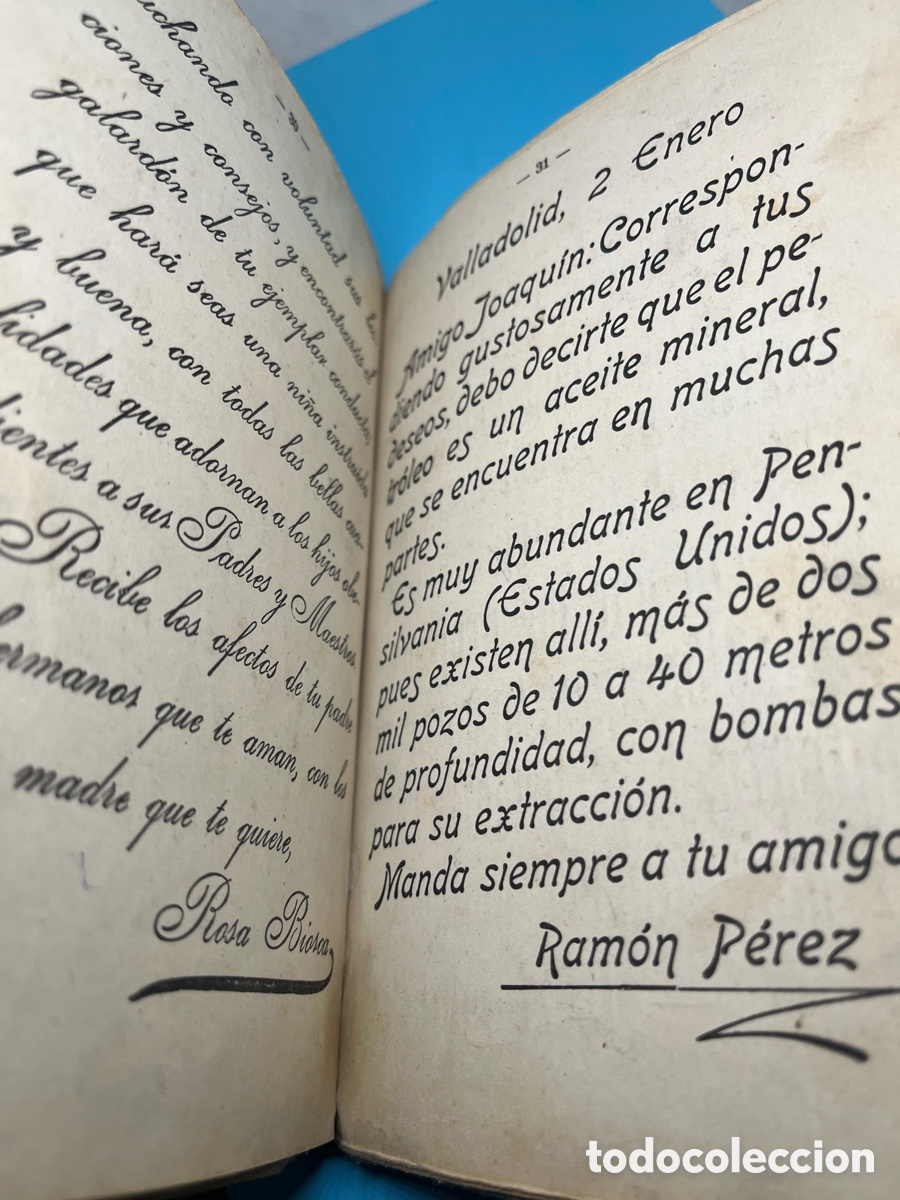 — 30 —
chando con voluntad sus lec-
ciones y consejos, y encontrarás el
galardón de tu ejemplar conducta,
que hará seas una niña instruida
y buena, con todas las bellas cua-
lidades que adornan a los hijos obe-
dientes a sus Padres y Maestros
Recibe los afectos de tu padre
hermanos que te aman, con los
madre que te quiere,
Rosa Biosca
— 31 —
Valladolid, 2 Enero
Amigo Joaquín: Correspon-
diendo gustosamente a tus
deseos, debo decirte que el pe-
tróleo es un aceite mineral,
que se encuentra en muchas
partes.
Es muy abundante en Pen-
silvania (Estados Unidos);
pues existen allí, más de dos
mil pozos de 10 a 40 metros
de profundidad, con bombas
para su extracción.
Manda siempre a tu amigo
Ramón Pérez
todocoleccion